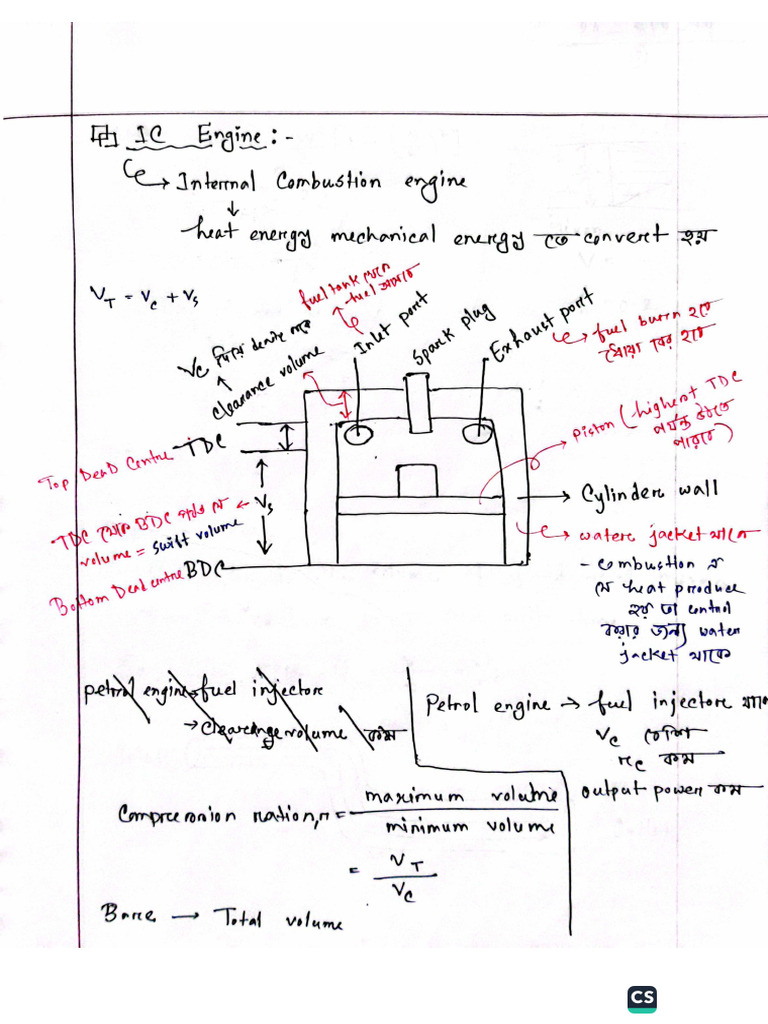 IC Engine:-
Internal Combustion engine
heat energy mechanical energy তে convert হয়
V_T = V_c + V_s
fuel tank থেকে
fuel আসবে
V_c দিয়ে denote করে
clearance volume
Inlet port
Spark plug
Exhaust port
fuel burn হতে
ধোঁয়া বের হবে
piston (highest TDC
পর্যন্ত উঠতে
পারবে)
Top Dead Centre TDC
Cylinder wall
TDC থেকে BDC পর্যন্ত যে
volume = swift volume
V_s
water jacket থাকে
Bottom Dead centre BDC
- combustion এ
যে heat produce
হয় তা control
করার জন্য water
jacket থাকে
petrol engine fuel injectore
→ clearange volume কম
Petrol engine → fuel injectore থাকে
V_c বেশি
r_c কম
output power কম
Compression ration, r = maximum volume
minimum volume
= V_T
V_c
Bore → Total volume
CS